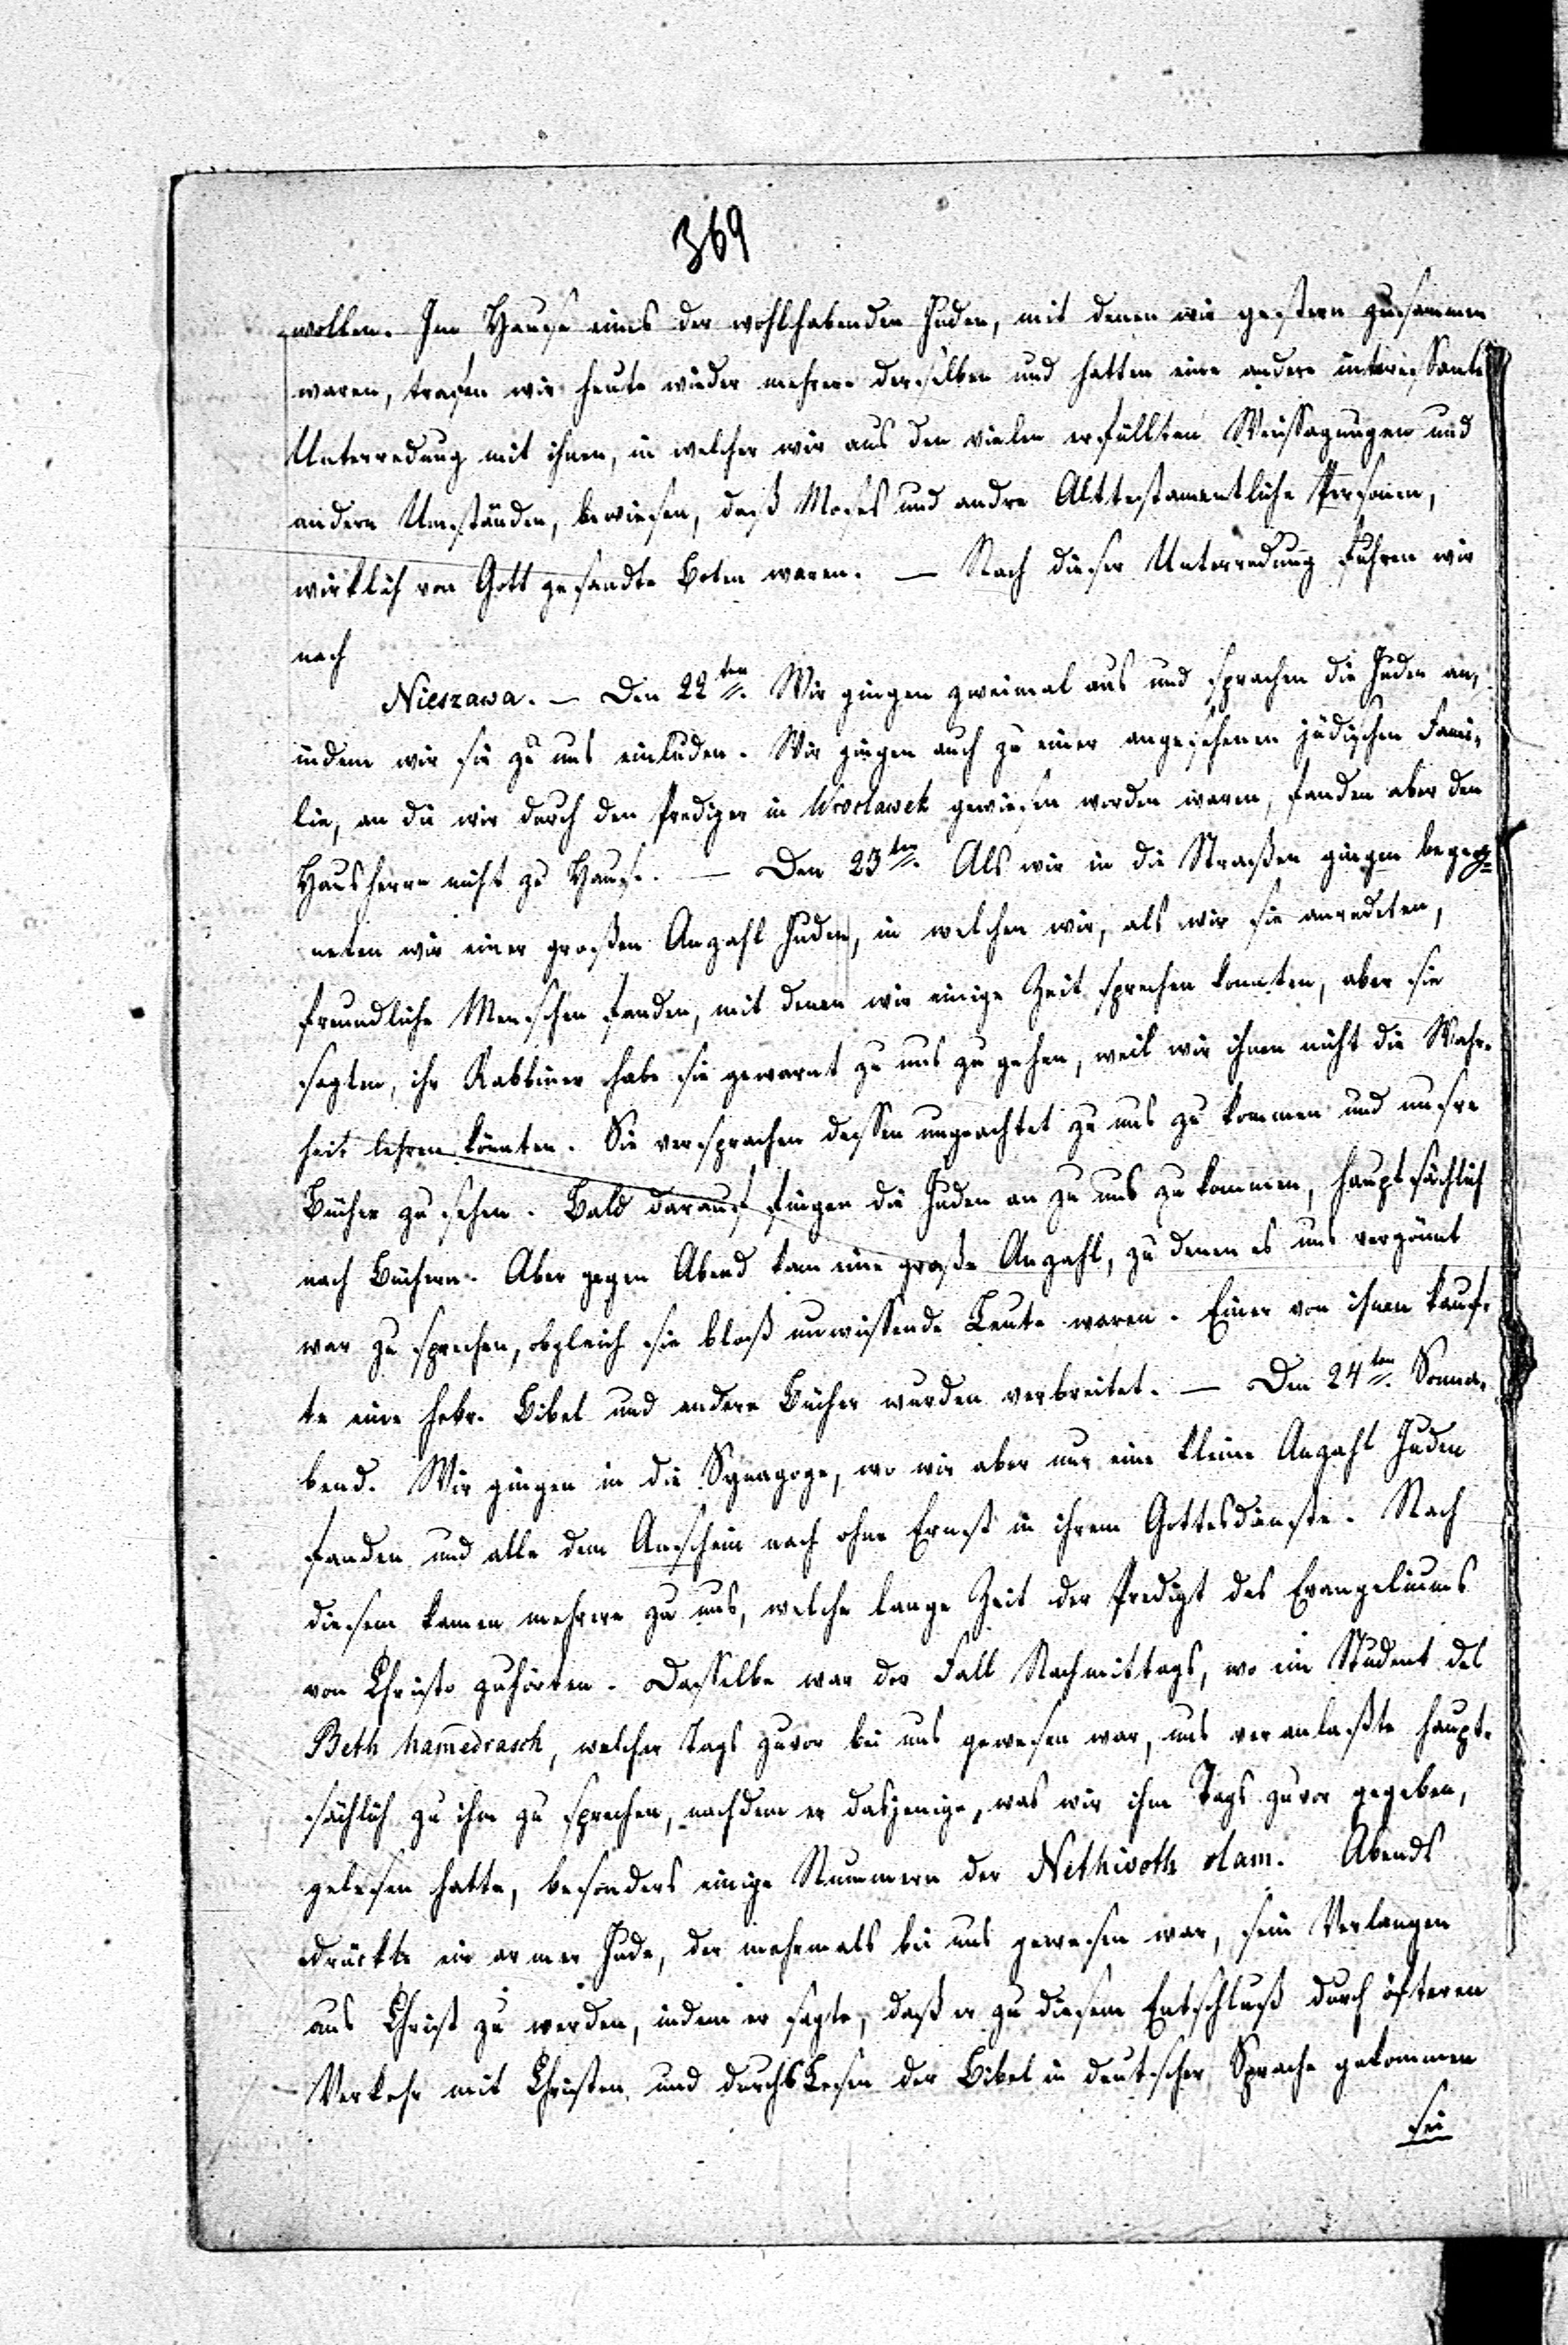 369
wollen. Im Hause eines der wohlhabenden Juden, mit denen wir gestern zusammen
waren, trafen wir heute wieder mehrere derselben und hatten eine andere interessante
Unterredung mit ihnen, in welcher wir aus den vielen erfüllten Weissagungen und
andern Umständen, bewiesen, daß Moses und andre Alttestamentliche Personen,
wirklich von Gott gesandte Boten waren. — Nach dieser Unterredung fuhren wir
nach
Nieszawa. — Den 22ten. Wir gingen zweimal aus und sprachen die Juden an,
indem wir sie zu uns einluden. Wir gingen auch zu einer angesehenen jüdischen Fami-
lie, an die wir durch den Prediger in Wroclawek gewiesen worden waren, fanden aber den
Hausherrn nicht zu Hause. — Den 23ten. Als wir in die Straßen gingen begeg-
neten wir einer großen Anzahl Juden, in welchen wir, als wir sie anredeten,
freundliche Menschen fanden, mit denen wir einige Zeit sprechen konnten, aber sie
sagten, ihr Rabbiner habe sie gewarnt zu uns zu gehen, weil wir ihnen nicht die Wahr-
heit lehren könnten. Sie versprachen dessen ungeachtet zu uns zu kommen und unsre
Bücher zu sehen. Bald darauf fingen die Juden an zu uns zu kommen, hauptsächlich
nach Büchern. Aber gegen Abend kam eine große Anzahl, zu denen es uns vergönnt
war zu sprechen, obgleich sie bloß unwissende Leute waren. Einer von ihnen kauf-
te eine hebr. Bibel und andere Bücher wurden verbreitet. — Den 24ten. Sonna-
bend. Wir gingen in die Synagoge, wo wir aber nur eine kleine Anzahl Juden
fanden und alle dem Anschein nach ohne Ernst in ihrem Gottesdienste. Nach
diesem kamen mehrere zu uns, welche lange Zeit der Predigt des Evangeliums
von Christo zuhörten. Dasselbe war der Fall Nachmittags, wo ein Student des
Beth hamedrasch, welcher Tags zuvor bei uns gewesen war, uns veranlaßte haupt-
sächlich zu ihm zu sprechen, nachdem er dasjenige, was wir ihm Tags zuvor gegeben,
gelesen hatte, besonders einige Nummern der Nethivoth olam. Abends
drückte ein armer Jude, der mehrmals bei uns gewesen war, sein Verlangen
aus Christ zu werden, indem er sagte, daß er zu diesem Entschluß durch öfteren
Verkehr mit Christen und durchs Lesen der Bibel in deutscher Sprache gekommen
sei